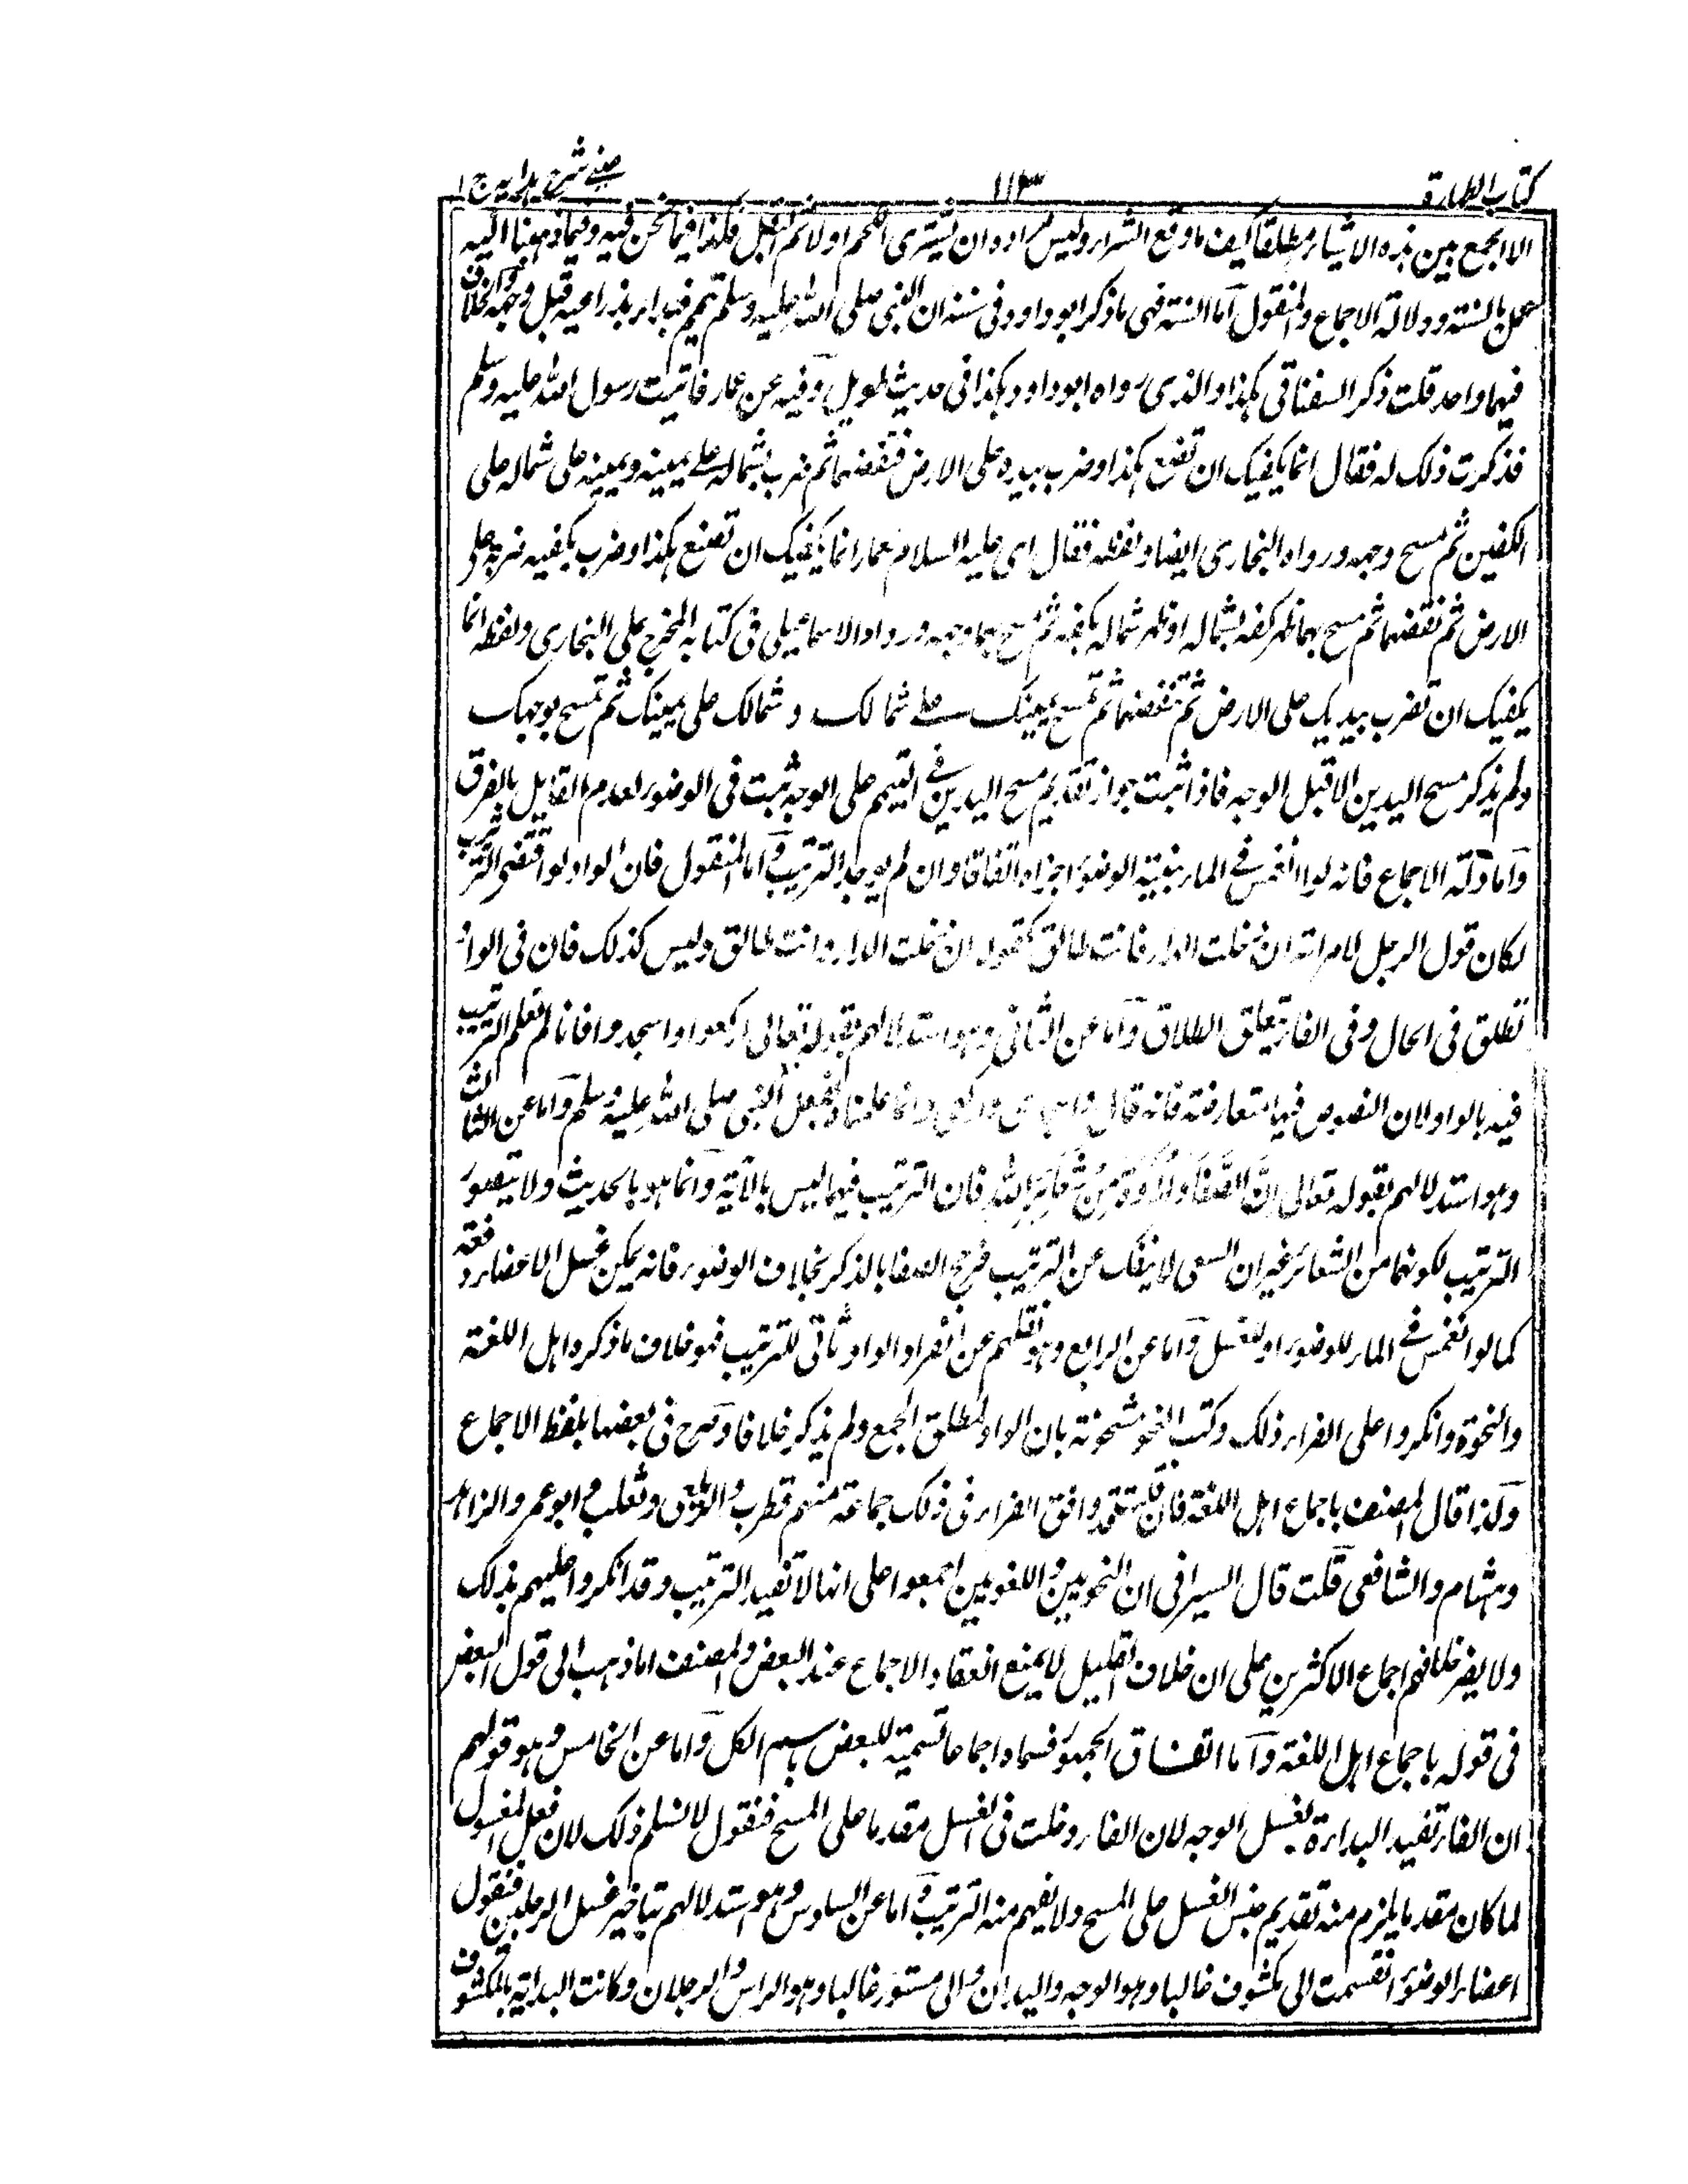 كتاب الطهارة
١١٣
عيني شرح هدايه ج ١
الا الجمع بين هذه الاشياء مطلقا كيف ما وقع الشراء وليس مراده ان يشترى اللحم اولا ثم البقل فكذا فيما نحن فيه وفيما ذهبنا اليه
عمل بالسنة ودلالة الاجماع والمنقول اما السنة فهى ما ذكر ابو داود فى سننه ان النبى صلى الله عليه وسلم تيمم فبدا بذراعيه قبل وجهه والخلاف
فيهما واحد قلت ذكر السغناقى هكذا والذى رواه ابو داود هكذا فى حديث طويل وفيه عن عمار فاتيت رسول الله عليه وسلم
فذكرت ذلك له فقال انما يكفيك ان تصنع هكذا وضرب بيده على الارض فنفضها ثم ضرب بشماله على يمينه ويمينه على شماله على
الكفين ثم مسح وجهه ورواه البخارى ايضا ولفظه فقال اى عليه السلام لعمار انما يكفيك ان تصنع هكذا وضرب بكفيه ضربة على
الارض ثم نفضهما ثم مسح بهما ظهر كفه بشماله او ظهر شماله بكفه ثم مسح بهما وجهه ورواه الاسماعيلى فى كتابه المخرج على البخارى ولفظه انما
يكفيك ان تضرب بيديك على الارض ثم تنفضهما ثم تمسح بيمينك على شمالك و شمالك على يمينك ثم تمسح بوجهك
ولم يذكر مسح اليدين الا قبل الوجه فاذا ثبت جواز تقديم مسح اليدين فى التيمم على الوجه ثبت فى الوضوء لعدم القايل بالفرق
واما دلالة الاجماع فانه لو انغمس فى الماء بنية الوضوء اجزاه اتفاقا وان لم يوجد الترتيب واما المنقول فان الواو لو اقتضى الترتيب
لكان قول الرجل لامراته ان دخلت الدار فانت طالق كقوله ان دخلت الدار وانت طالق وليس كذلك فان فى الواو
تطلق فى الحال وفى الفاء يتعلق الطلاق واما عن الثانى وهو استدلالهم بقوله تعالى اركعوا واسجدوا فانا لم نعلم الترتيب
فيه بالواو لان النصوص فيها متعارضة فانه قال واسجدى واركعى وانما علمناه بفعل النبى صلى الله عليه وسلم واما عن الثالث
وهو استدلالهم بقوله تعالى اِنَّ الصَّفَا وَالْمَرْوَةَ مِنْ شَعَائِرِ اللهِ فان الترتيب فيهما ليس بالآية وانما هو بالحديث ولا يتصور
الترتيب لكونهما من الشعائر غير ان السعى لا ينفك عن الترتيب فرجح الصفا بالذكر بخلاف الوضوء فانه يمكن غسل الاعضاء دفعة
كما لو انغمس فى الماء للوضوء او للغسل واما عن الرابع وهو نقلهم عن الفراء الواو تاتى للترتيب فهو خلاف ما ذكره اهل اللغة
والنحوة وانكروا على الفراء ذلك وكتب النحو مشحونة بان الواو لمطلق الجمع ولم يذكر خلافا وصرح فى بعضها بلفظ الاجماع
ولذا قال المصنف باجماع اهل اللغة فان قلت قد وافق الفراء فى ذلك جماعة منهم قطرب والربعى وثعلب وابو عمر والزاهد
وهشام والشافعى قلت قال السيرافى ان النحويين واللغويين اجمعوا على انها لا تفيد الترتيب وقد انكروا عليهم بذلك
ولا يضر خلافهم اجماع الاكثرين على ان خلاف القليل لا يمنع انعقاد الاجماع عند البعض والمصنف اما ذهب الى قول البعض
فى قوله باجماع اهل اللغة واما اتفاق الجمهور فسماه اجماعا تسمية للبعض باسم الكل واما عن الخامس وهو قولهم
ان الفاء تفيد البداءة بغسل الوجه لان الفاء دخلت فى الغسل مقدما على المسح فنقول لا نسلم ذلك لان فعل المغسول
لما كان مقدما يلزم منه تقديم جنس الغسل على المسح ولا يفهم منه الترتيب واما عن السادس وهو استدلالهم بتاخير غسل الرجلين فنقول
اعضاء الوضوء انقسمت الى مكشوف غالبا وهو الوجه واليدان والى مستور غالبا وهو الراس والرجلان وكانت البداية بالمكشوف